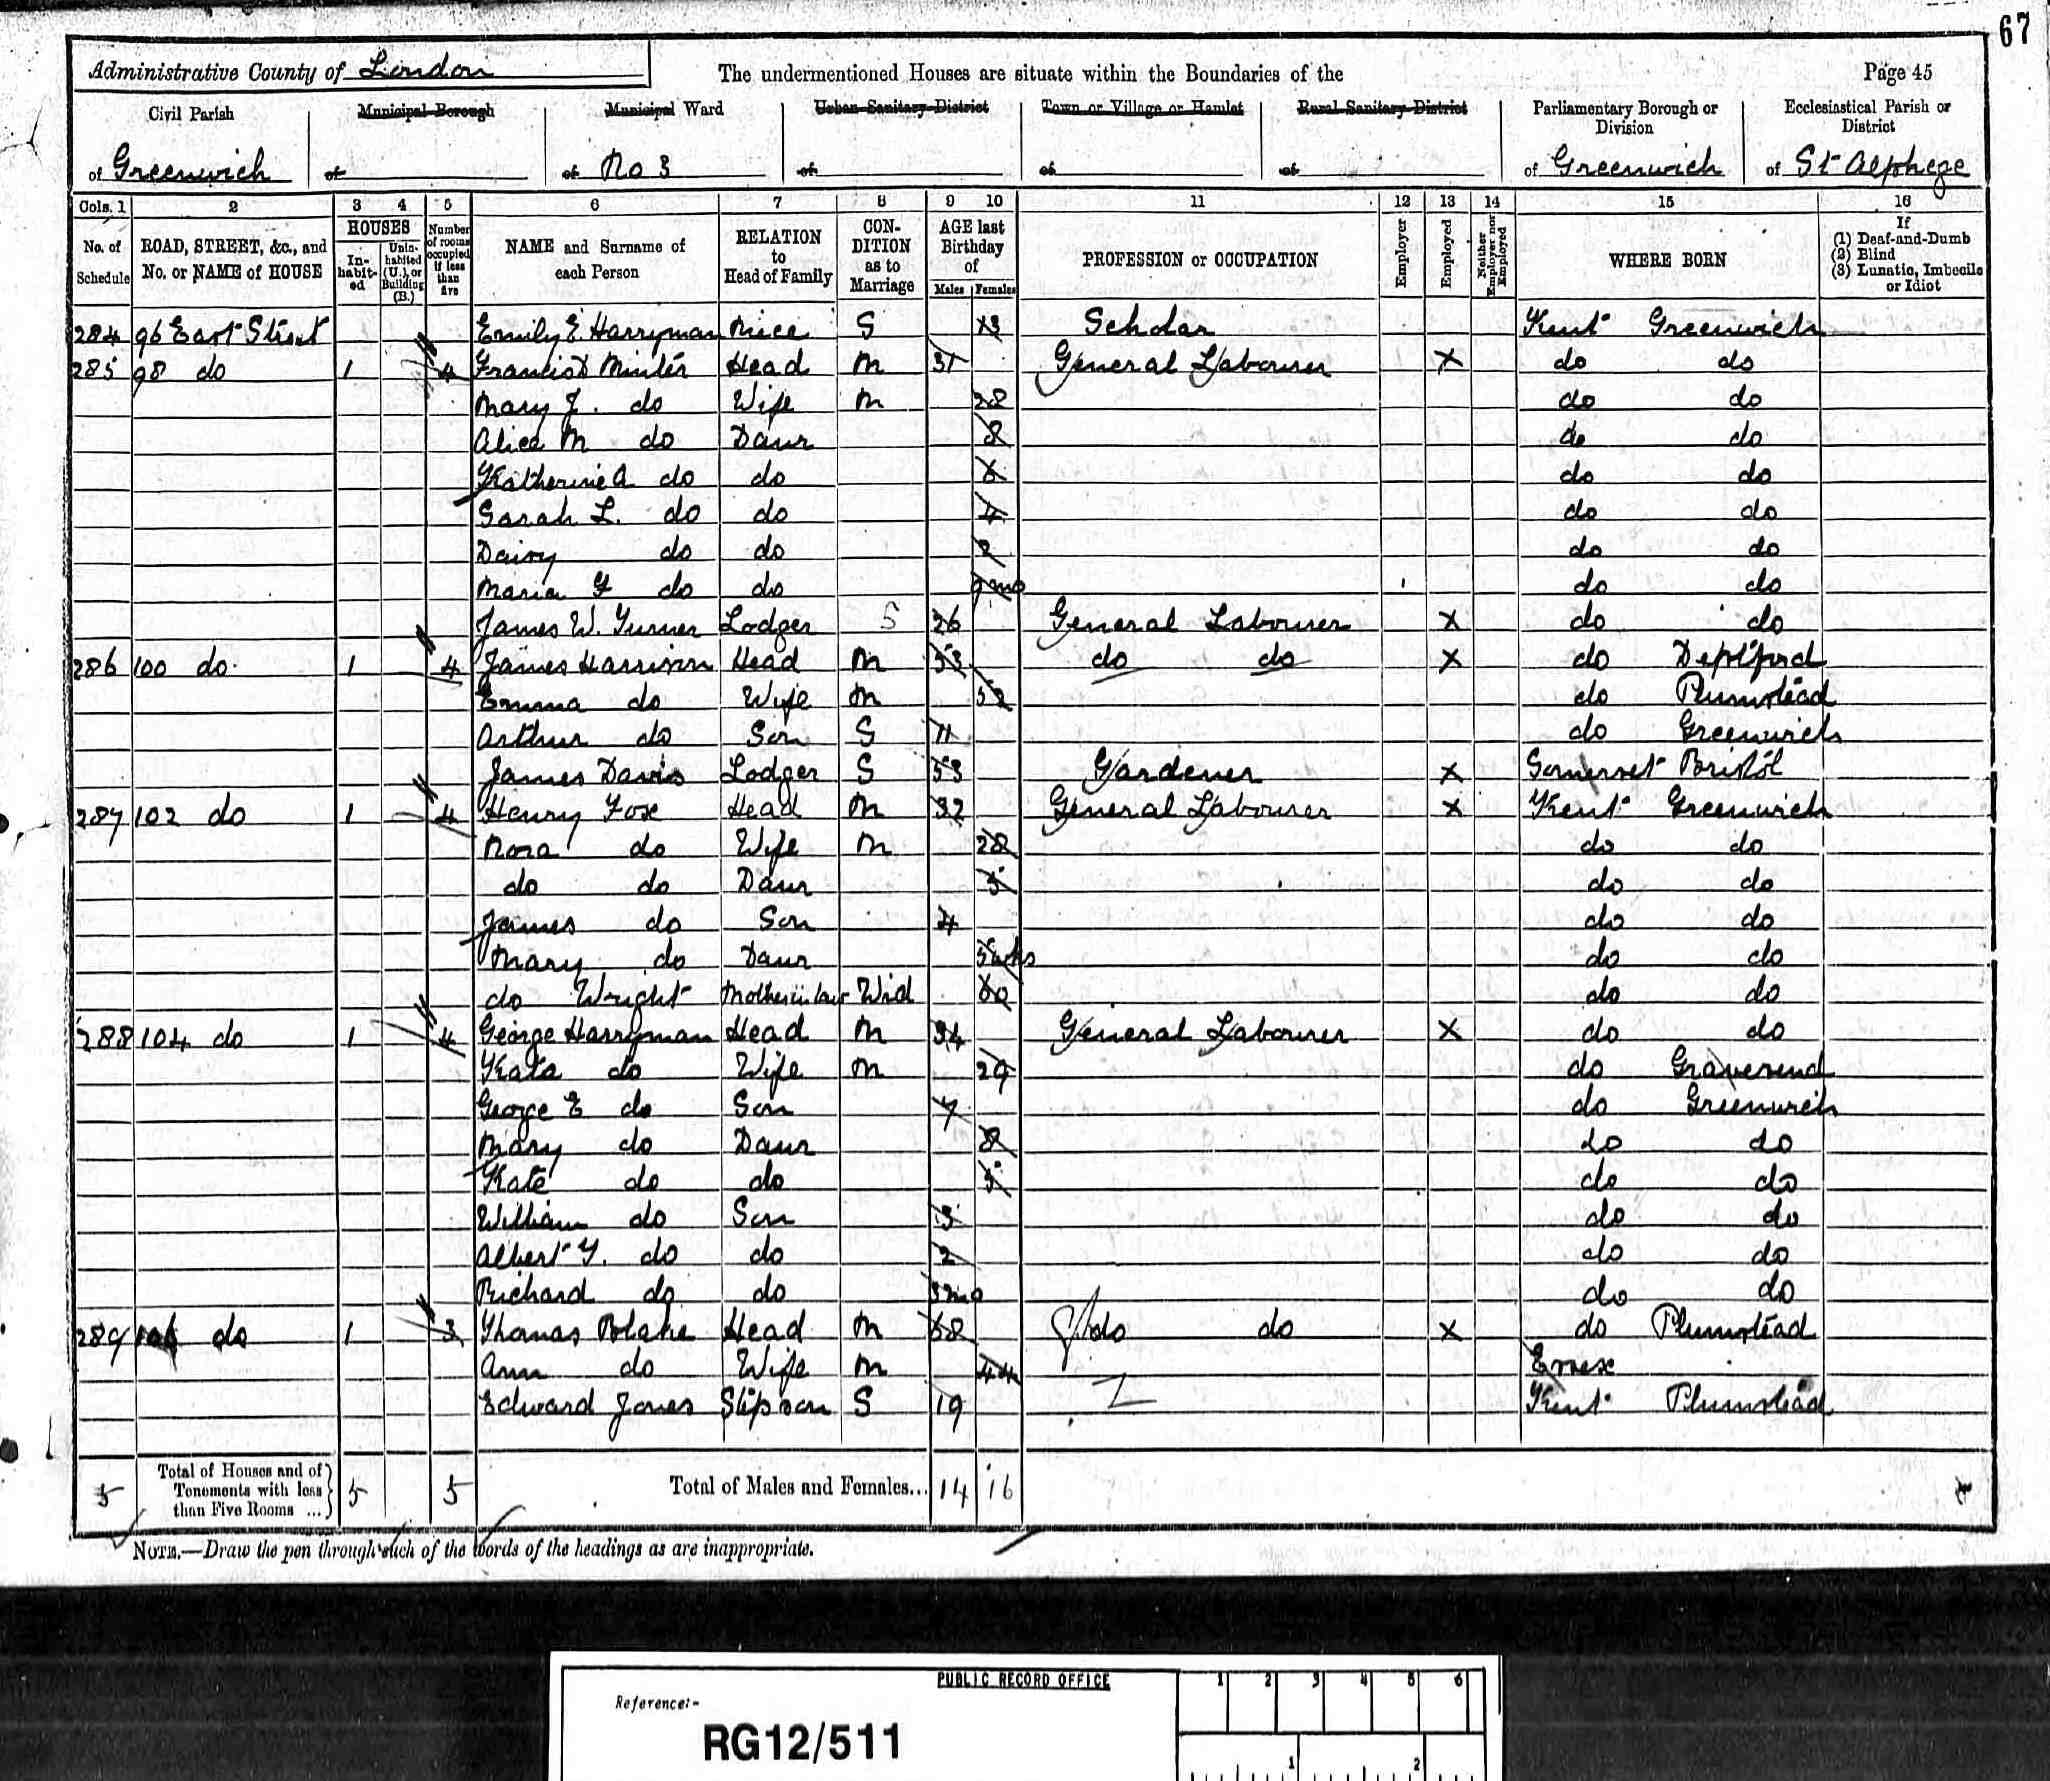 67
Administrative County of London The undermentioned Houses are situate within the Boundaries of the Page 45
Civil Parish Municipal Borough Municipal Ward Urban Sanitary District Town or Village or Hamlet Rural Sanitary District Parliamentary Borough or Division Ecclesiastical Parish or District
of Greenwich of of No 3 of of of of Greenwich of St Alphege
Cols. 1 2 3 4 5 6 7 8 9 10 11 12 13 14 15 16
No. of Schedule ROAD, STREET, &c., and No. or NAME of HOUSE HOUSES In-habit-ed Unin-habited (U.), or Building (B.) Number of rooms occupied if less than five NAME and Surname of each Person RELATION to Head of Family CON-DITION as to Marriage AGE last Birthday of Males Females PROFESSION or OCCUPATION Employer Employed Neither Employer nor Employed WHERE BORN If (1) Deaf-and-Dumb (2) Blind (3) Lunatic, Imbecile or Idiot
284 96 East Street Emily E. Harryman Niece S 13 Scholar Kent Greenwich
285 98 do 1 4 Francis D Minter Head M 31 General Labourer X do do
Mary J. do Wife M 28 do do
Alice M do Daur 8 do do
Katherine A do do 6 do do
Sarah L. do do 4 do do
Daisy do do 2 do do
Maria F do do 9 mo do do
James W. Turner Lodger S 26 General Labourer X do do
286 100 do 1 4 James Harrison Head M 53 do do X do Deptford
Emma do Wife M 52 do Plumstead
Arthur do Son S 11 do Greenwich
James Davis Lodger S 53 Gardener X Somerset Bristol
287 102 do 1 4 Henry Fox Head M 32 General Labourer X Kent Greenwich
Nora do Wife M 28 do do
do do Daur 5 do do
James do Son 4 do do
Mary do Daur 5 wks do do
do Wright Mother in law Wid 60 do do
288 104 do 1 4 George Harryman Head M 34 General Labourer X do do
Kate do Wife M 29 do Gravesend
George E do Son 7 do Greenwich
Mary do Daur 8 do do
Kate do do 5 do do
William do Son 3 do do
Albert Y. do do 2 do do
Richard do do 3 mo do do
289 106 do 1 3 Thomas Blake Head M 68 do do X do Plumstead
Ann do Wife M 44 Essex
Edward Jones Stepson S 19 Kent Plumstead
5 Total of Houses and of Tenements with less than Five Rooms ... 5 5 Total of Males and Females... 14 16
NOTE.—Draw the pen through such of the words of the headings as are inappropriate.
PUBLIC RECORD OFFICE 1 2 3 4 5 6
Reference:-
RG12/511
1 2